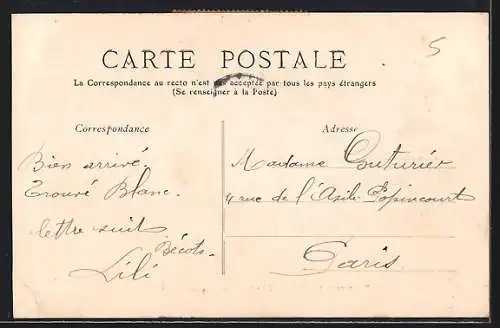 5
CARTE POSTALE
La Correspondance au recto n'est pas acceptée par tous les pays étrangers
(Se renseigner à la Poste)
Correspondance
Bien arrivé.
Trouvé Blanc.
lettre suit
Bécots.
Lili
Adresse
Madame Couturier
4 rue de l'Asile Popincourt
Paris